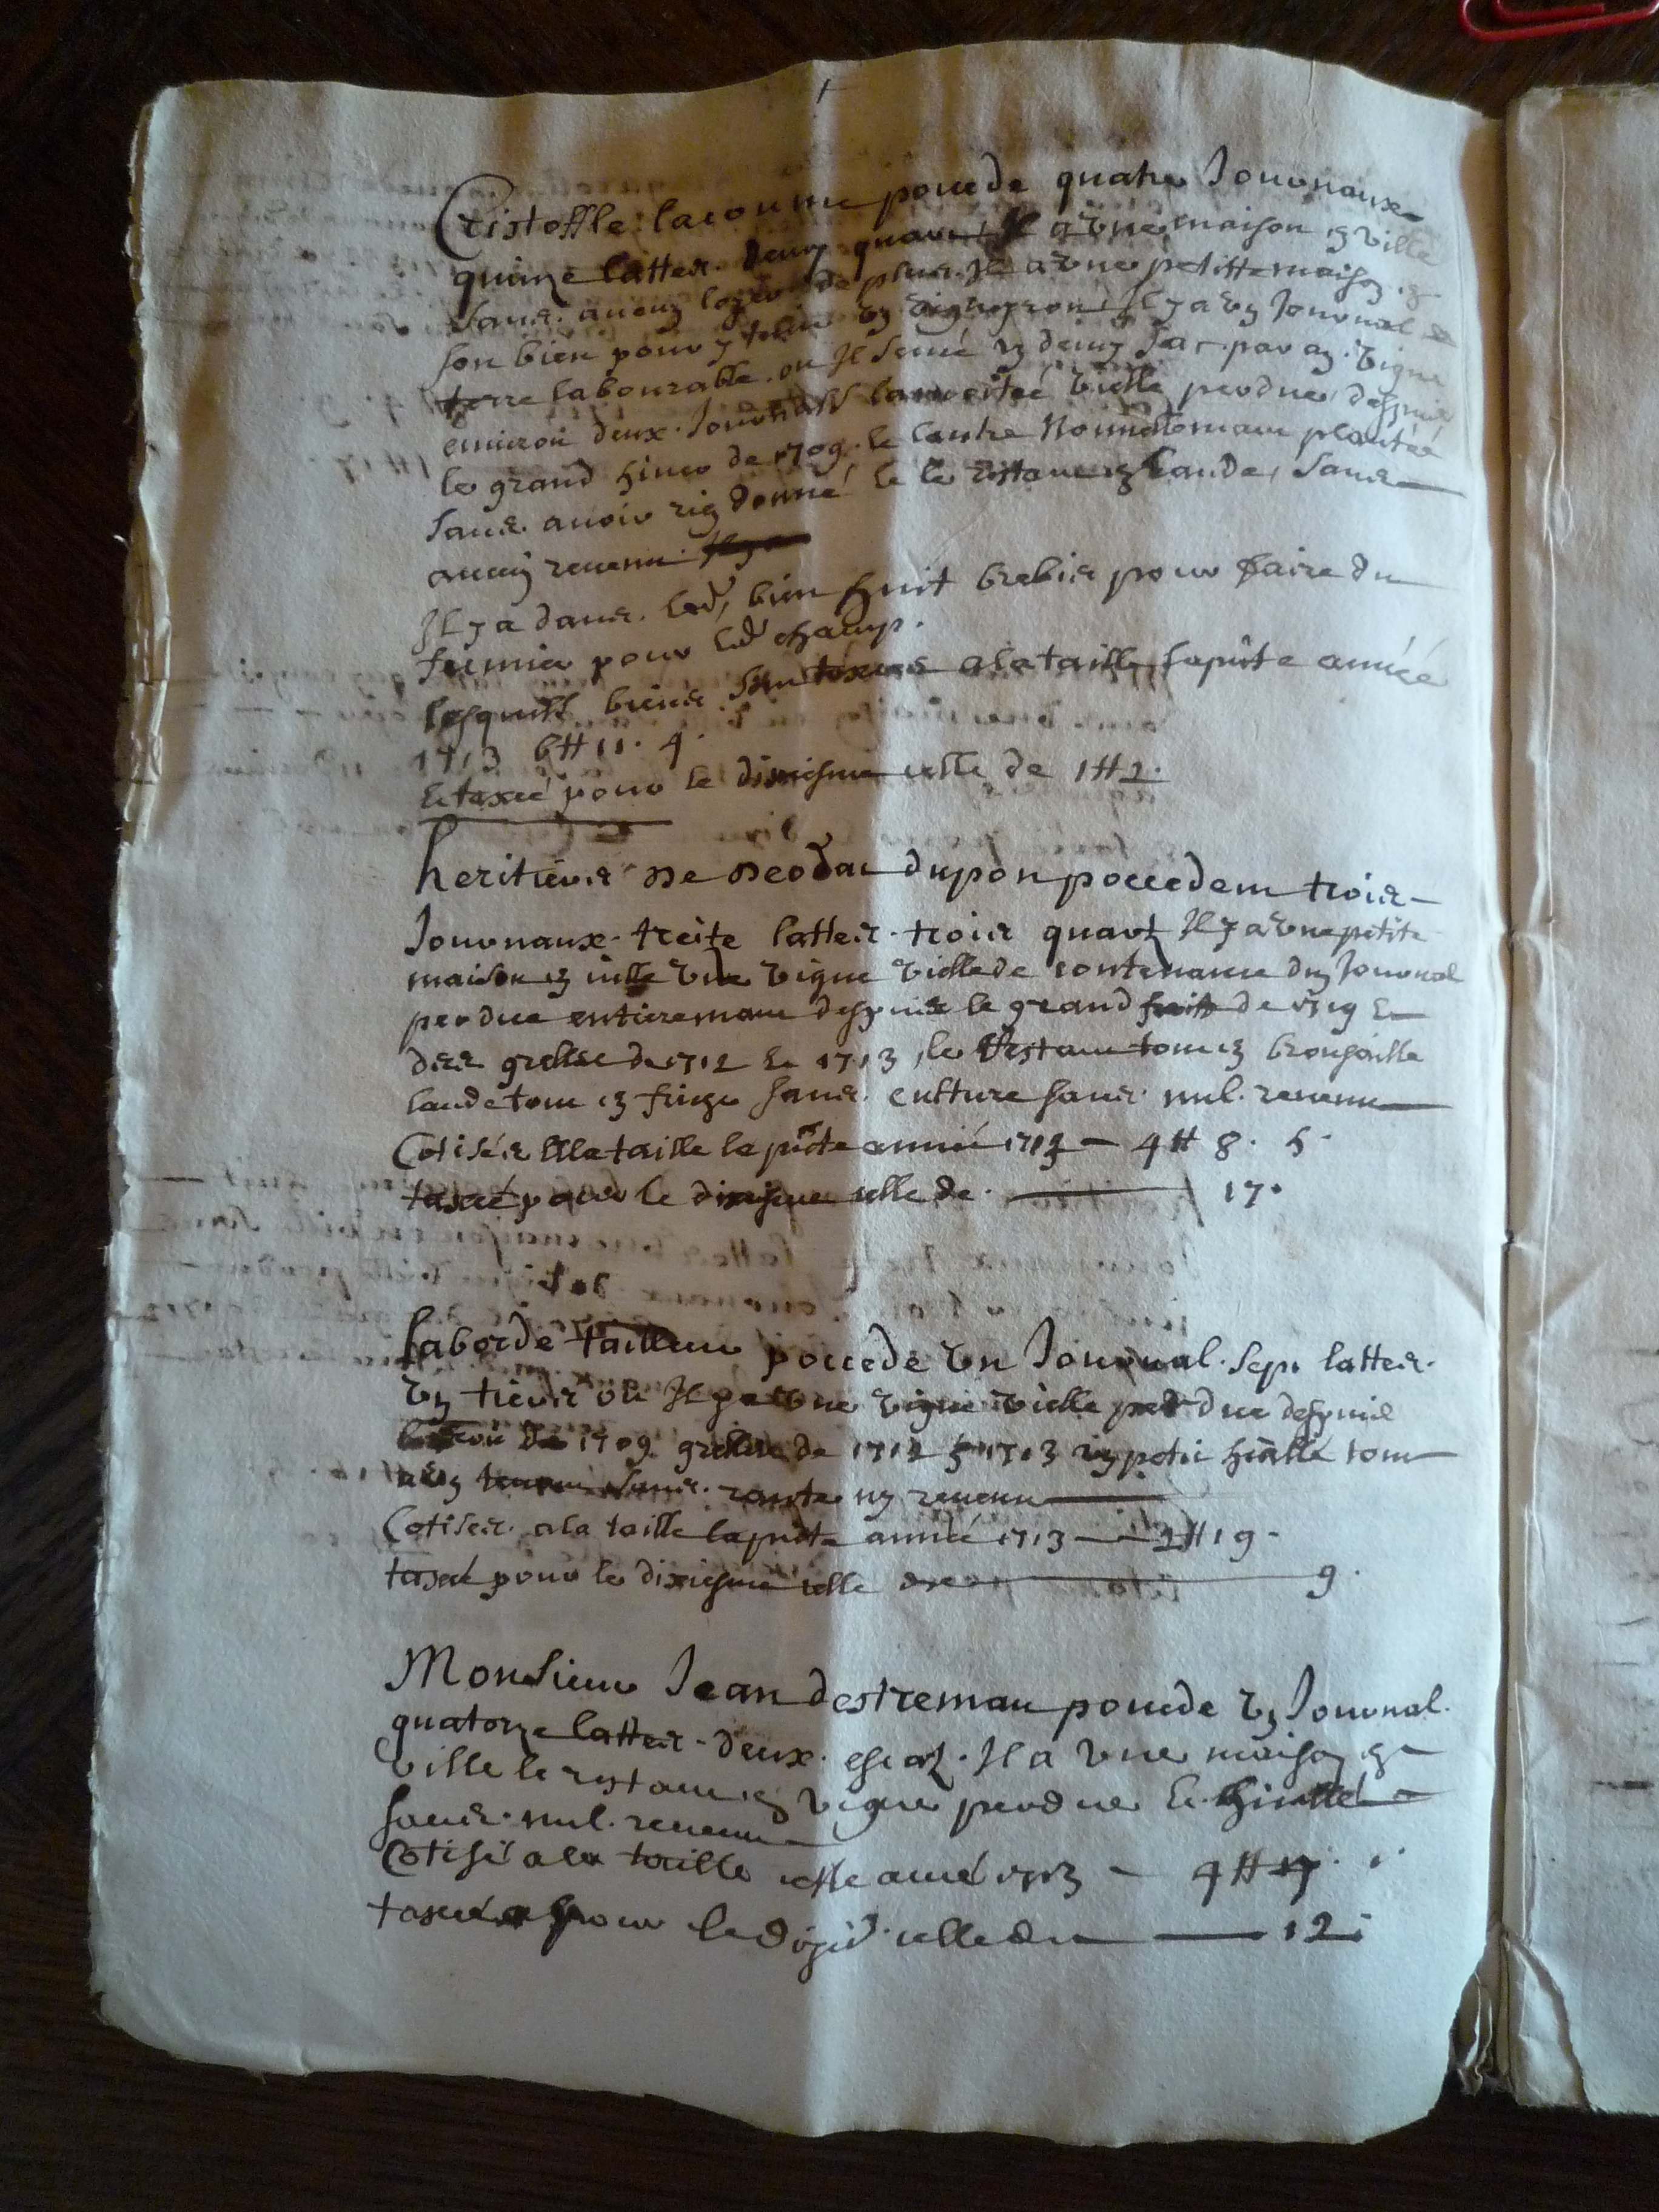 Cristoffle lacoume pocede quatre Journaux
quinze lattes. deux quart Il a vne maison en ville
sans. aucun loyer de plus. Il a vne petitte maison en
son bien pour y tenir vn vigneron Il y a vn Journal de
terre labourable. ou Il semé vn demy sac. par an. vigne
enuiron deux. Journals la moitée vielle perdue despuis
le grand hiuer de 1709. le lautre nouuellemant plantée
sans. auoir rien donné le le restant en lande, sans
aucun reuenu
Il y a dans. led. bien huit brebis pour faire du
fumier pour led champ.
lesquels biens. sont taxées a la taille, la pnte année
1713 6 ₶ 11. 4.
Et taxé pour le dixiesme celle de 1 ₶ 2.
heritiers de deodat dupon poccedent trois
Journaux. treite lattes. trois quart Il y a vne petite
maison en ville vne vigne vielle de contenance dun Journal
perdue entieremant despuis le grand froit de 1709 Et
des gresles de 1712 Et 1713, le restant tout en brousaille
lande tout en friege sans. culture sans. nul. reuenu
Cotisés A la taille la pnte année 1713 — 4 ₶ 8. 5.
taxé pour le dixiesme celle de. — 17.
laborde tailleur poccede vn Journal. sept lattes.
vn tiers ou Il y a vne vigne vielle perdue despuis
1709 gresleee de 1712 Et 1713 vn petit tout
sans. ny reuenu
Cotises. a la taille la pnte année 1713 — 2 ₶ 19.
taxé pour le dixiesme celle de — 9.
Monsieur Jean destremau pocede vn Journal.
quatorze lattes. deux. escatz. Il a vne maison en
ville le restant en vigne perdue Et
sans. nul. reuenu
Cotisé a la taille cette anné 1713 — 4 ₶
taxée pour le dixie. celle de — 12